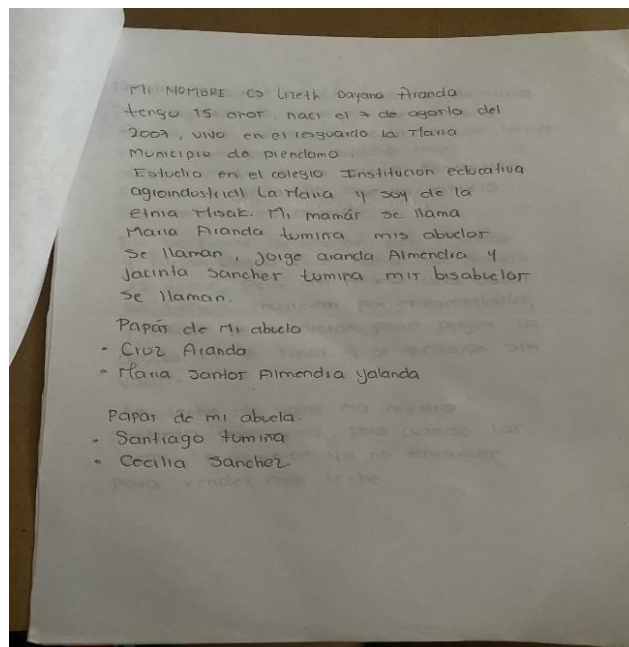 Mi NOMBRE es Lizeth Dayana Aranda
tengo 15 años naci el 7 de agosto del
2007, vivo en el resguardo la Maria
Municipio de piendamo.
Estudio en el colegio Institucion educativa
agroindustrial La Maria y soy de la
etnia Misak. Mi mamás se llama
Maria Aranda tumiña mis abuelos
se llaman, jorge aranda Almendra y
Jacinta Sanchez tumiña mis bisabuelos
se llaman.
Papás de mi abuelo
• Cruz Aranda
• Maria Santos Almendra yalanda
papas de mi abuela.
• Santiago tumiña
• Cecilia Sanchez
para vender mas leche